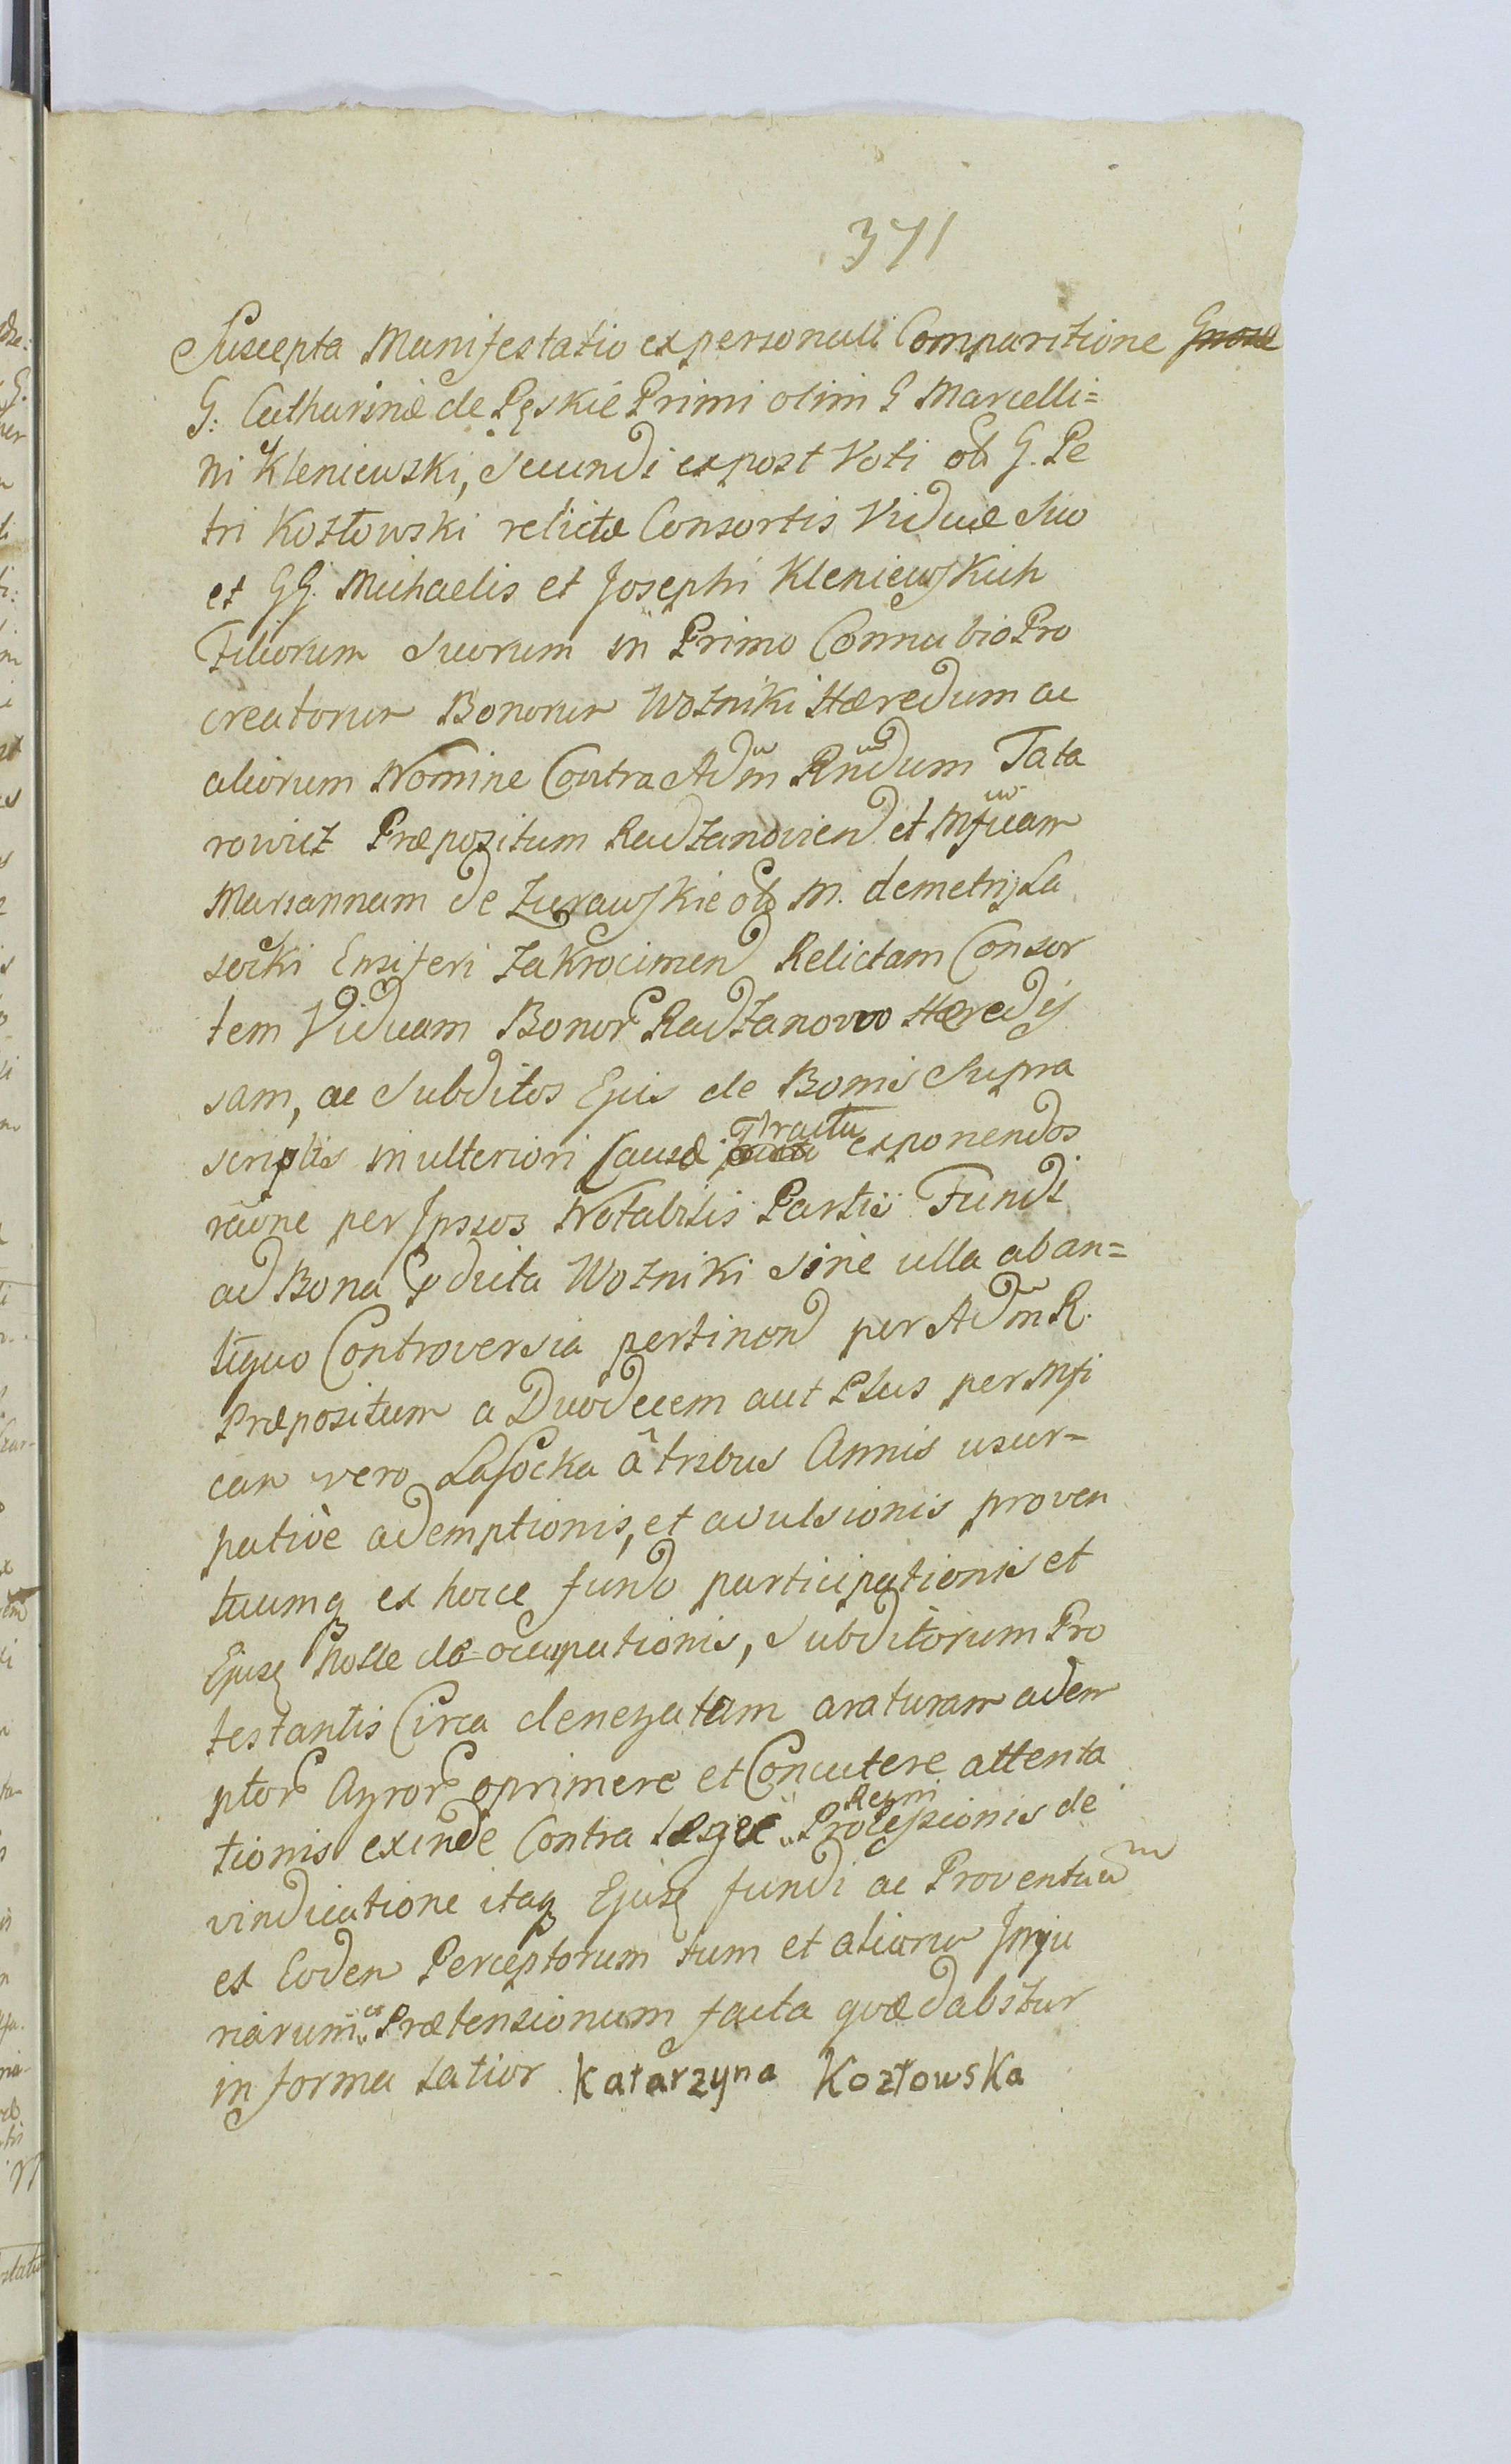 371
Suscepta Manifestatio ex personali Comparitione Gnosæ
G: Catharinæ de Pęskie Primi olim G Marcelli=
ni Kleniewski, Secundi expost Voti olī G. Pe
tri Kozłowski relictæ Consortis Viduæ Suo
et GG. Michaelis et Josephi Kleniewskich
Filiorum Suorum in Primo Connubio Pro
creatorum Bonorum Wozniki Hæredum ac
aliorum Nomine Contra Adm Rndum Tata
rowicz Præpositum Radzanovien et Mficam
Mariannam de Zurawskie olī M. demetrij La
socki Ensiferi Zakrocimen Relictam Consor
tem Viduam Bonor Radzanowo Hæredis
sam, ac Subditos Ejus de Bonis Supra
scriptis in ulteriori Causæ Tractu exponendos
raōne per Ipsos Notabilis Partis Fundi
ad Bona Prædicta Wozniki sine ulla ab an=
tiquo Controversia pertinen per Adm R.
Præpositum a Duodecem aut Plus per Mfi
cam vero Lasocka â tribus Annis usur=
pativè ademptionis, et avulsionis proven
tuumq ex hocce fundo participationis et
Ejusq hocce de occupationis, Subditorum Pro
testantis Circa denegatam araturam adem
ptor Agror oprimere et Concutere attenta
tionis exinde Contra Leges Regni Processionis de
vindicatione itaq Ejusq fundi ac Proventuum
ex Eodem Perceptorum tum et aliorum Inju
riarum et Prætensionum facta quæ dabitur
in forma latior Katarzyna Kozłowska